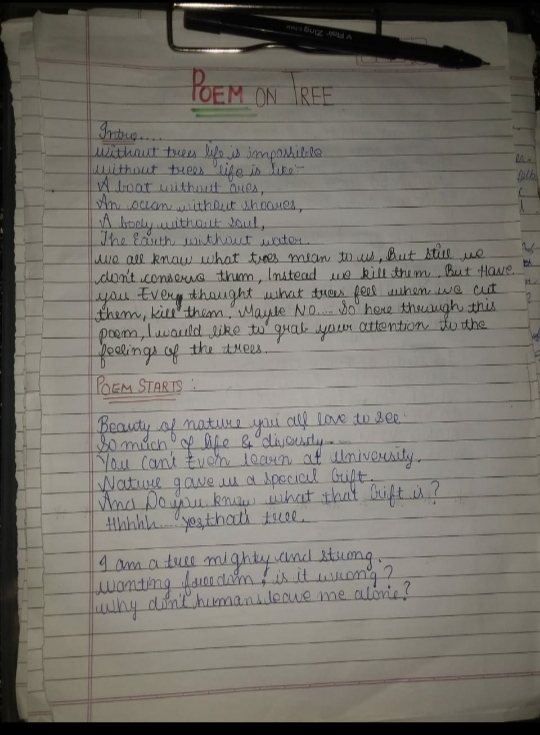 V Flair Zing
POEM ON TREE
Intro....
without trees life is impossible
without trees life is like-
A boat without oars,
An ocean without shoares,
A body without soul,
The Earth without water.
we all know what trees mean to us, But still we
don't conserve them, Instead we kill them. But Have
you Every thought what trees feel when we cut
them, kill them. Maybe No.... So here through this
poem, I would like to grab your attention to the
feelings of the trees.
POEM STARTS :
Beauty of nature you all love to see
So much of life & diversity
You can't Even learn at university.
Nature gave us a special Gift.
And Do you know what that Gift is?
Hhhhh.... yes, that's tree.
I am a tree mighty and strong.
wanting freedom, is it wrong?
why don't humans leave me alone?